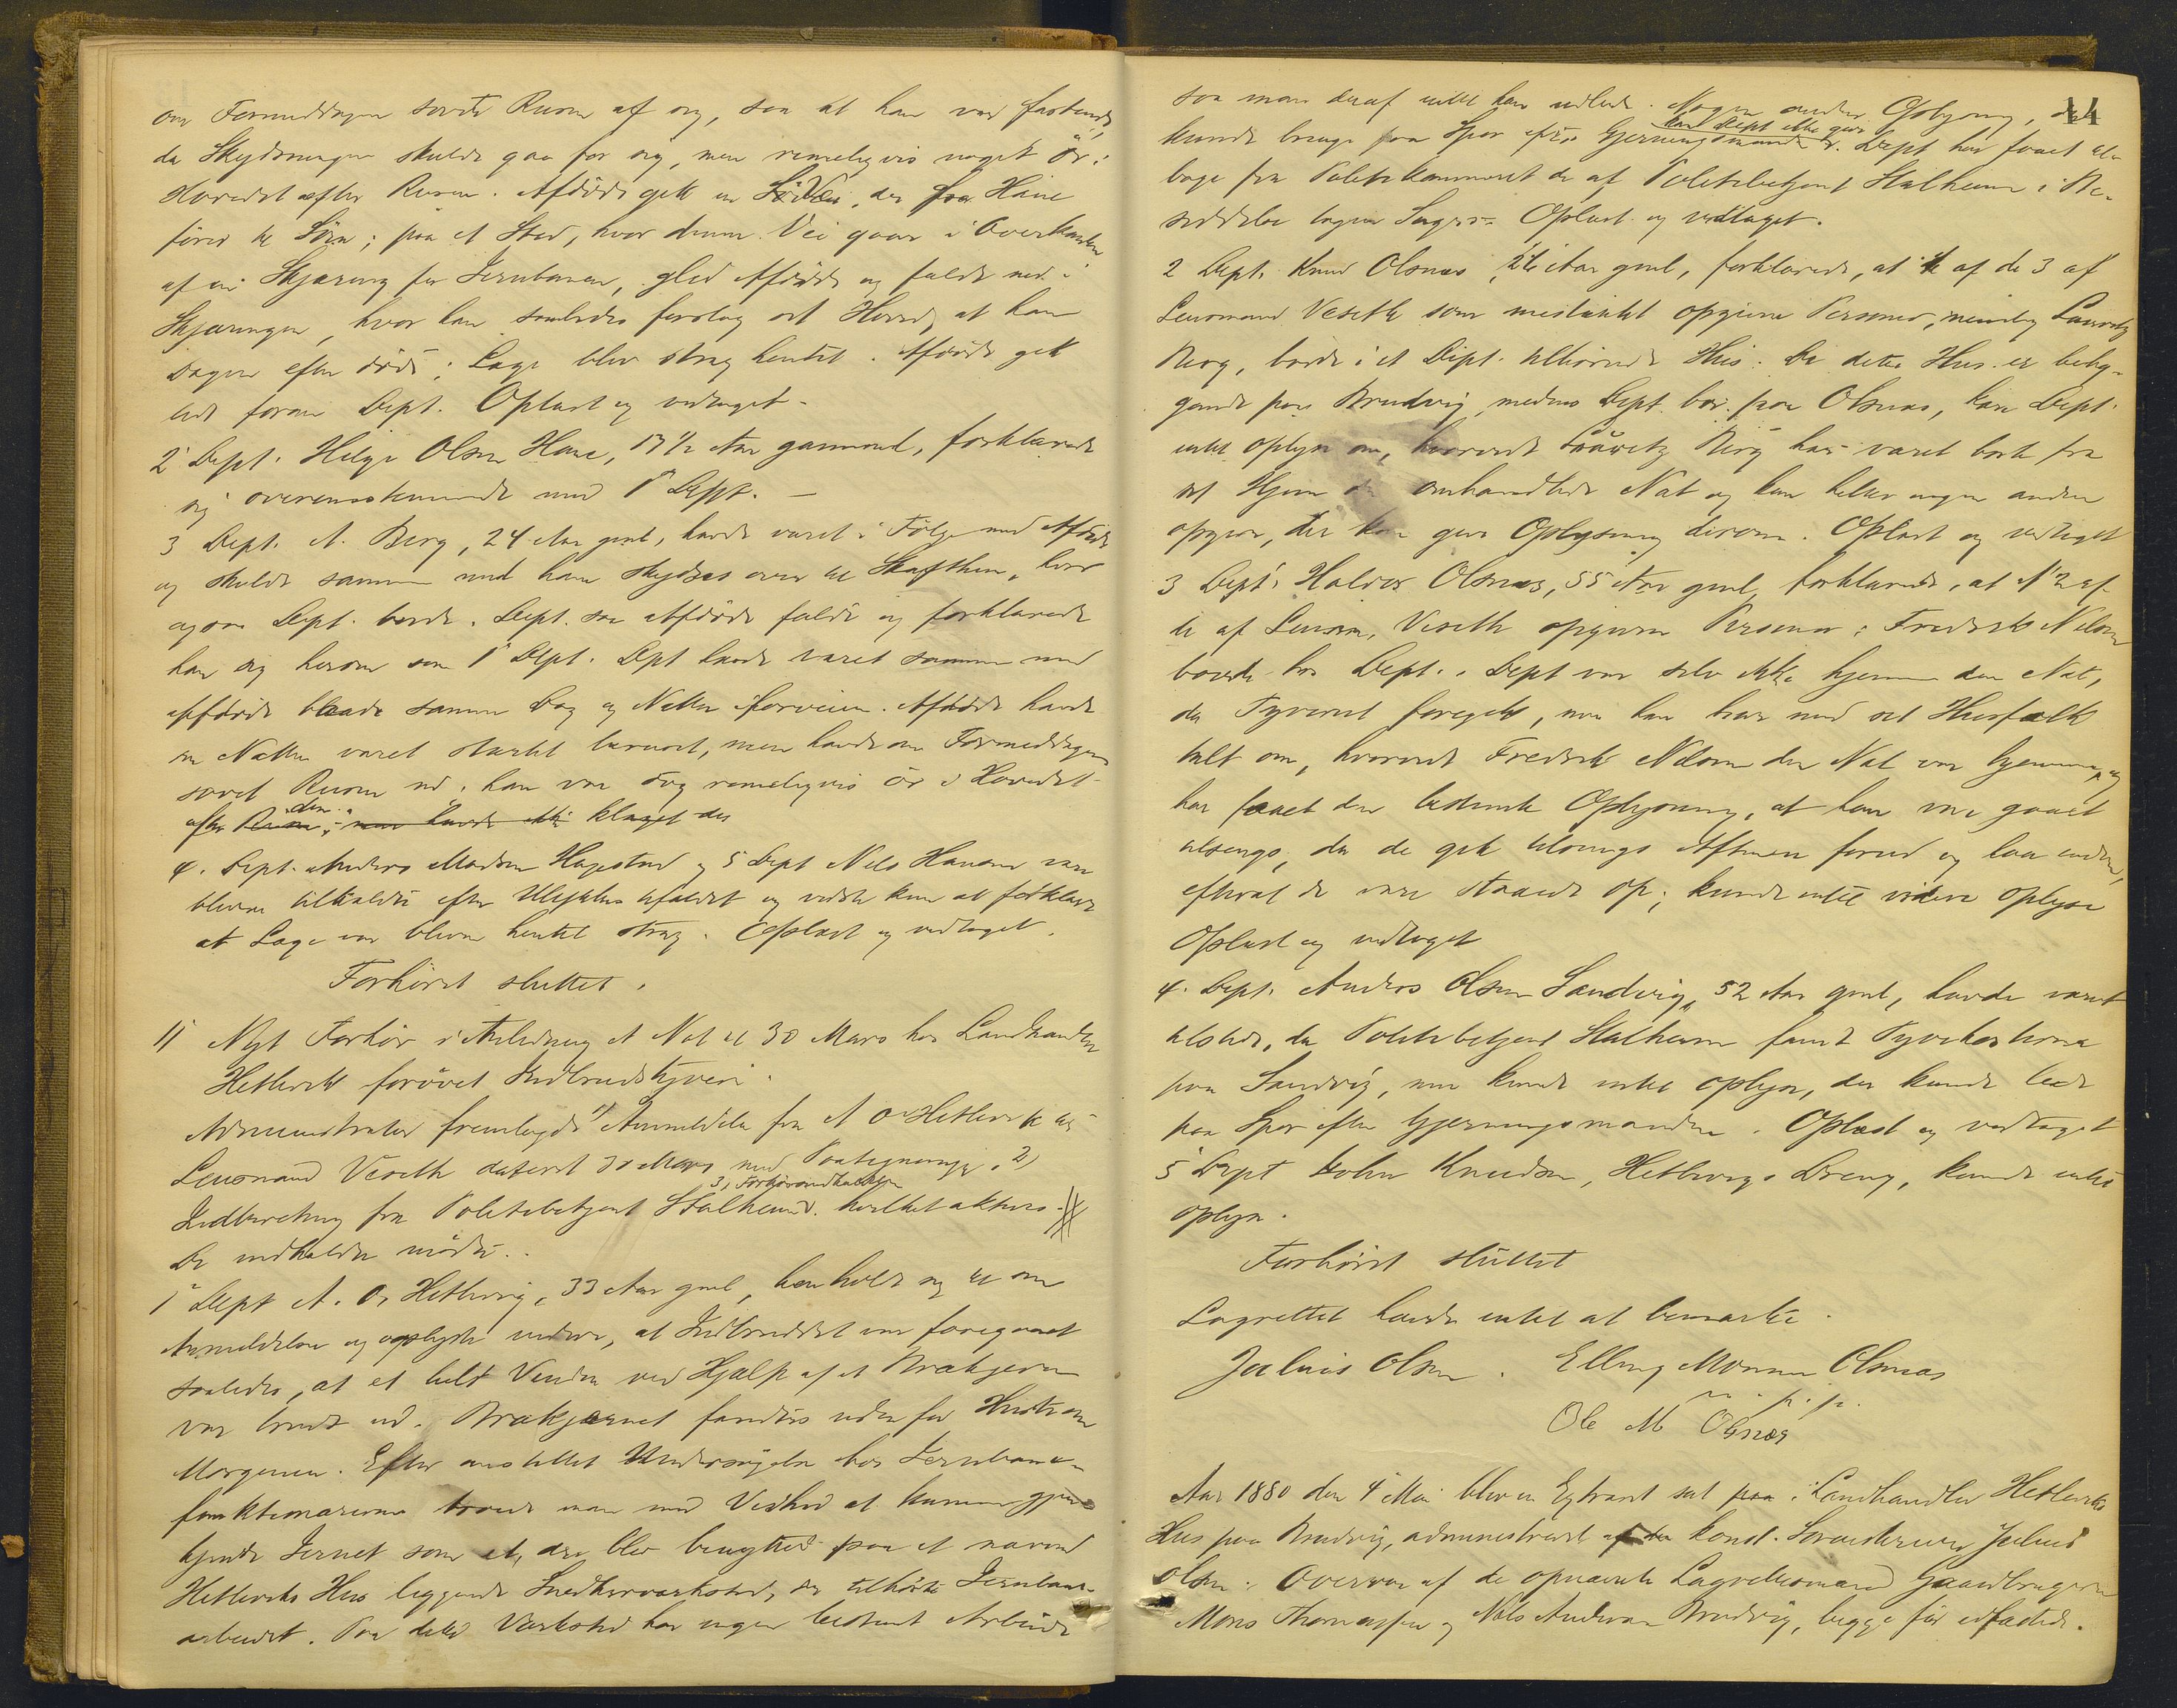 om Formiddagen sovet Rusen af sig, saa at han var fastende,
da Skydsningen skulde gaa for sig, men rimeligvis noget ör i
Hovedet efter Rusen. Afdöde gik en Vei, der fra Hane
förer til Söen; paa et Sted, hvor denne Vei gaar i Overkanten
af en Skjæring for Jernbanen, gled Afdöde og faldt ned i
Skjæringen, hvor han saaledes forslog sit Hoved, at han
Dagen efter döde; Læge blev strax hentet. Afdöde gik
lidt foran Dept. Oplæst og vedtaget.
2 Dept. Helge Olsen Hane, 17½ Aar gammel, forklarede
sig overensstemmende med 1ste Dept. —
3 Dept. A. Berg, 24 Aar gml, havde været i Fölge med Afdöde
og skulde sammen med ham skydses over til , hvor
ogsaa Dept. boede. Dept. saa Afdöde falde og forklarede
han sig herom som 1 Dept. Dept havde været sammen med
Afdöde baade samme Dag og Natten iforveien. Afdöde havde
om Natten været stærkt beruset, men havde om Formiddagen
sovet Rusen ud; han var dog rimeligvis ör i Hovedet
efter den; men havde ikke klaget des
4. Dept. Anders Madsen Hagestad og 5 Dept Nils Hansen vare
blevne tilkaldte efter Ulykkestilfældet og vidste kun at forklare
at Læge var bleven hentet strax. Oplæst og vedtaget.
Forhöret sluttet.
11 Nyt Forhör i Anledning et Nat til 30 Mars hos Landhandler
Hetlevik forövet Indbrudstyveri.
Administrator fremlagde 1) Anmeldelse fra A O Hetlevik til
Lensmand Veseth dateret 30 Mars med Paategninger, 2)
3, Forhörsindkaldelse
Indberetning fra Politibetjent Stalheim. hvilket akteres. #
De indkaldte mödte.
1 Dept A. O. Hetlevig, 33 Aar gml, henholdt sig til sin
Anmeldelse og oplyste videre, at Indbruddet var foregaaet
saaledes, at et helt Vindu ved Hjælp af et Brækjern
var brudt ud. Brækjærnet fandtes udenfor Huset om
Morgenen. Efter anstillet Undersögelse hos Jernbane-
funktionærerne troede man med Vished at kunne gjen-
kjende Jernet som et, der blev benyttet paa et nærved
Hetleviks Hus liggende Snedkerværksted, der tilhörte Jernbane-
arbeidet. Paa dette Værksted har ingen bestemt Arbeide
44
saa man deraf intet kan udlede. Nogen anden Oplysning, der
kan Dept ikke give
kunde bringe paa Spor efter Gjerningsmanden. Dept har faaet til-
bage fra Politikammeret de af Politibetjent Stalheim i Be-
siddelse tagne Sager. Oplæst og vedtaget.
2 Dept. Knud Olsnes, Aar gml, forklarede, at 1 af de 3 af
Lensmand Veseth som mistænkt opgivne Personer, nemlig Lauritz
Berg, boede i et Dept. tilhörende Hus. Da dette Hus er belig-
gende paa Brudvig, medens Dept. bor paa Olsnes, kan Dept.
intet oplyse om, hvorvidt Lauritz Berg har været borte fra
sit Hjem den omhandlede Nat og kan heller ingen anden
opgive, der kan give Oplysning derom. Oplæst og vedtaget
3 Dept. Haldor Olsnes, 55 Aar gml, forklarede, at No 2 af
de af Lensm. Veseth opgivne Personer: Fredrik Nilsen
boede hos Dept. Dept var selv ikke hjemme den Nat,
da Tyveriet foregik, men han har med sit Husfolk
talt om, hvorvidt Fredrik Nilsen den Nat var hjemme, og
har faaet den bestemte Oplysning, at han var gaaet
tilsengs, da de gik tilsengs Aftenen forud og laa endnu,
efterat de vare staaede op; kunde intet videre oplyse
Oplæst og vedtaget
4. Dept. Anders Olsen Sandvig, 52 Aar gml, havde været
tilstede, da Politibetjent Stalheim fandt Tyvekosterne
paa Sandvig, men kunde intet oplyse, der kunde lede
paa Spor efter Gjerningsmanden. Oplæst og vedtaget
5 Dept John Knudsen, Hetlevigs Dreng, kunde intet
oplyse.
Forhöret sluttet
Lagrettet havde intet at bemærke.
Julius Olsen. Elling Monsen Olsnæs
m. p. p.
Ole M Olsnæs
Aar 1880 den 4 Mai blev en Extraret sat paa i Landhandler Hetleviks
Hus paa Brudvig, administreret af den konst. Sorenskriver Julius
Olsen i Overvær af de opnævnte Lagrettesmænd Gaardbrugerne
Mons Thomassen og Nils Andersen Brudvig, begge för edfæstede.